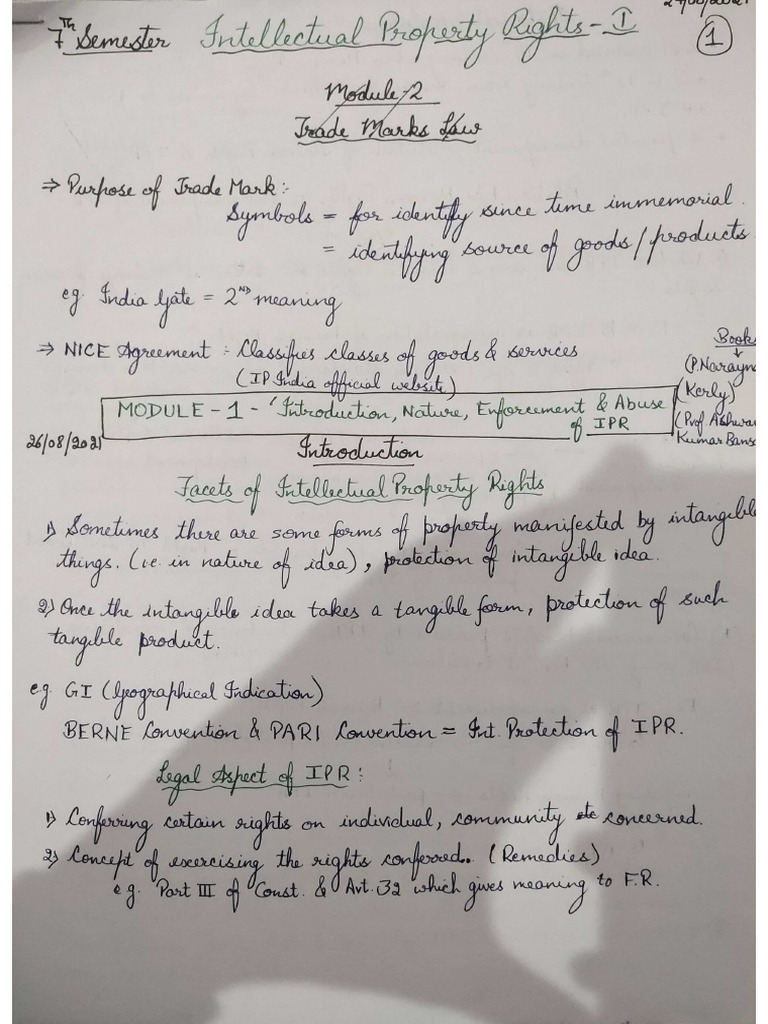 7th Semester Intellectual Property Rights - I
1
Module-2
Trade Marks Law
⇒ Purpose of Trade Mark:-
Symbols = for identify since time immemorial.
= identifying source of goods/products
eg. India Gate = 2ND meaning
⇒ NICE Agreement :- Classifies classes of goods & services
(IP India official website)
Book
(P. Narayna
(Kerly)
(Prof. Ashwa
Kumar Bans
MODULE - 1 - 'Introduction, Nature, Enforcement & Abuse
of IPR
26/08/2021
Introduction
Facets of Intellectual Property Rights
1) Sometimes there are some forms of property manifested by intangible
things. (i.e. in nature of idea), protection of intangible idea.
2) Once the intangible idea takes a tangible form, protection of such
tangible product.
eg. GI (Geographical Indication)
BERNE Convention & PARI Convention = Int. Protection of IPR.
Legal Aspect of IPR:
1) Conferring certain rights on individual, community etc concerned.
2) Concept of exercising the rights conferred.. (Remedies)
eg. Part III of Const. & Art. 32 which gives meaning to F.R.